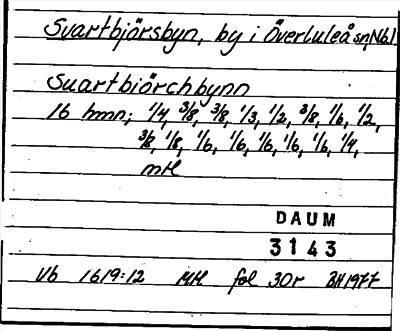 Svartbjörsbyn, by i Överluleå sn, Nb.l
Suartbiörchbynn
16 hmn; 1/4, 3/8, 3/8, 1/3, 1/2, 3/8, 1/6, 1/2,
3/8, 1/8, 1/6, 1/6, 1/6, 1/6, 1/6, 1/4,
mtl
DAUM
3143
Vb 1619:12 MM fol 30r BH1977